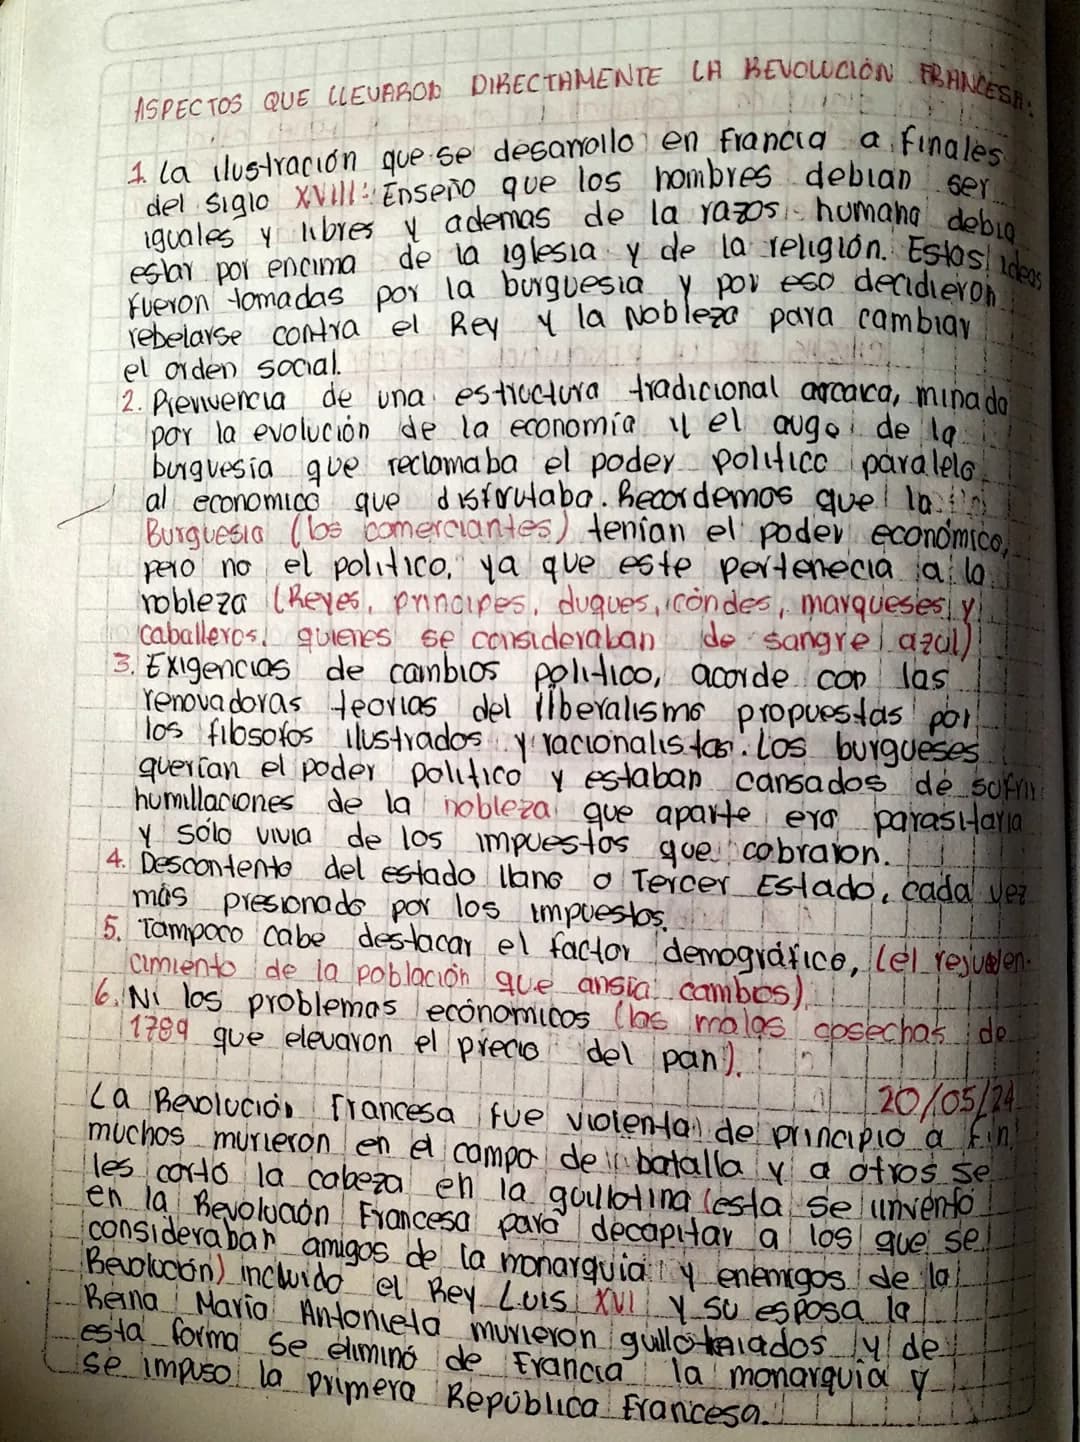 ASPECTOS QUE LLEVARON DIRECTAMENTE LA REVOLUCIÓN FRANCESA:
1. La ilustración que se desarrollo en Francia a finales
del siglo XVIII: Enseño que los hombres debian ser
iguales y libres y ademas de la razos humana debia
estar por encima de la iglesia y de la religión. Estas ideas
fueron tomadas por la burguesia y por eso decidieron
rebelarse contra el Rey y la Nobleza para cambiar
el orden social.
2. Previvencia de una estructura tradicional arcaica, minada
por la evolución de la economía y el augo de la
burguesía que reclamaba el poder político paralelo
al economico que disfrutaba. Recordemos que la
Burguesia (los comerciantes) tenían el poder económico,
pero no el politico, ya que este pertenecia a la
nobleza (Reyes, principes, duques, condes, marqueses y
caballeros, quienes se consideraban de sangre azul)
3. Exigencias de cambios politico, acorde con las
renovadoras teorias del liberalismo propuestas por
los filosofos ilustrados y racionalistas. Los burgueses
querían el poder politico y estaban cansados de sufrir
humillaciones de la nobleza que aparte era parasitaria
y sólo vivia de los impuestos que cobraron.
4. Descontento del estado llano o Tercer Estado, cada vez
más presionado por los impuestos.
5. Tampoco cabe destacar el factor demográfico, (el rejuven-
cimiento de la población que ansia cambios).
6. Ni los problemas económicos (las malas cosechas de
1789 que elevaron el precio del pan).
20/05/24
La Revolución Francesa fue violenta de principio a fin,
muchos murieron en el campo de batalla y a otros se
les corto la cabeza en la guillotina (esta se invento
en la Revolución Francesa para decapitar a los que se
considerabar amigos de la monarquia y enemigos de la
Revolución) incluido el Rey Luis XVI y su esposa la
Reina Maria Antonieta murieron guillotinados y de
esta forma se eliminó de Francia la monarquia y
se impuso la primera República Francesa.